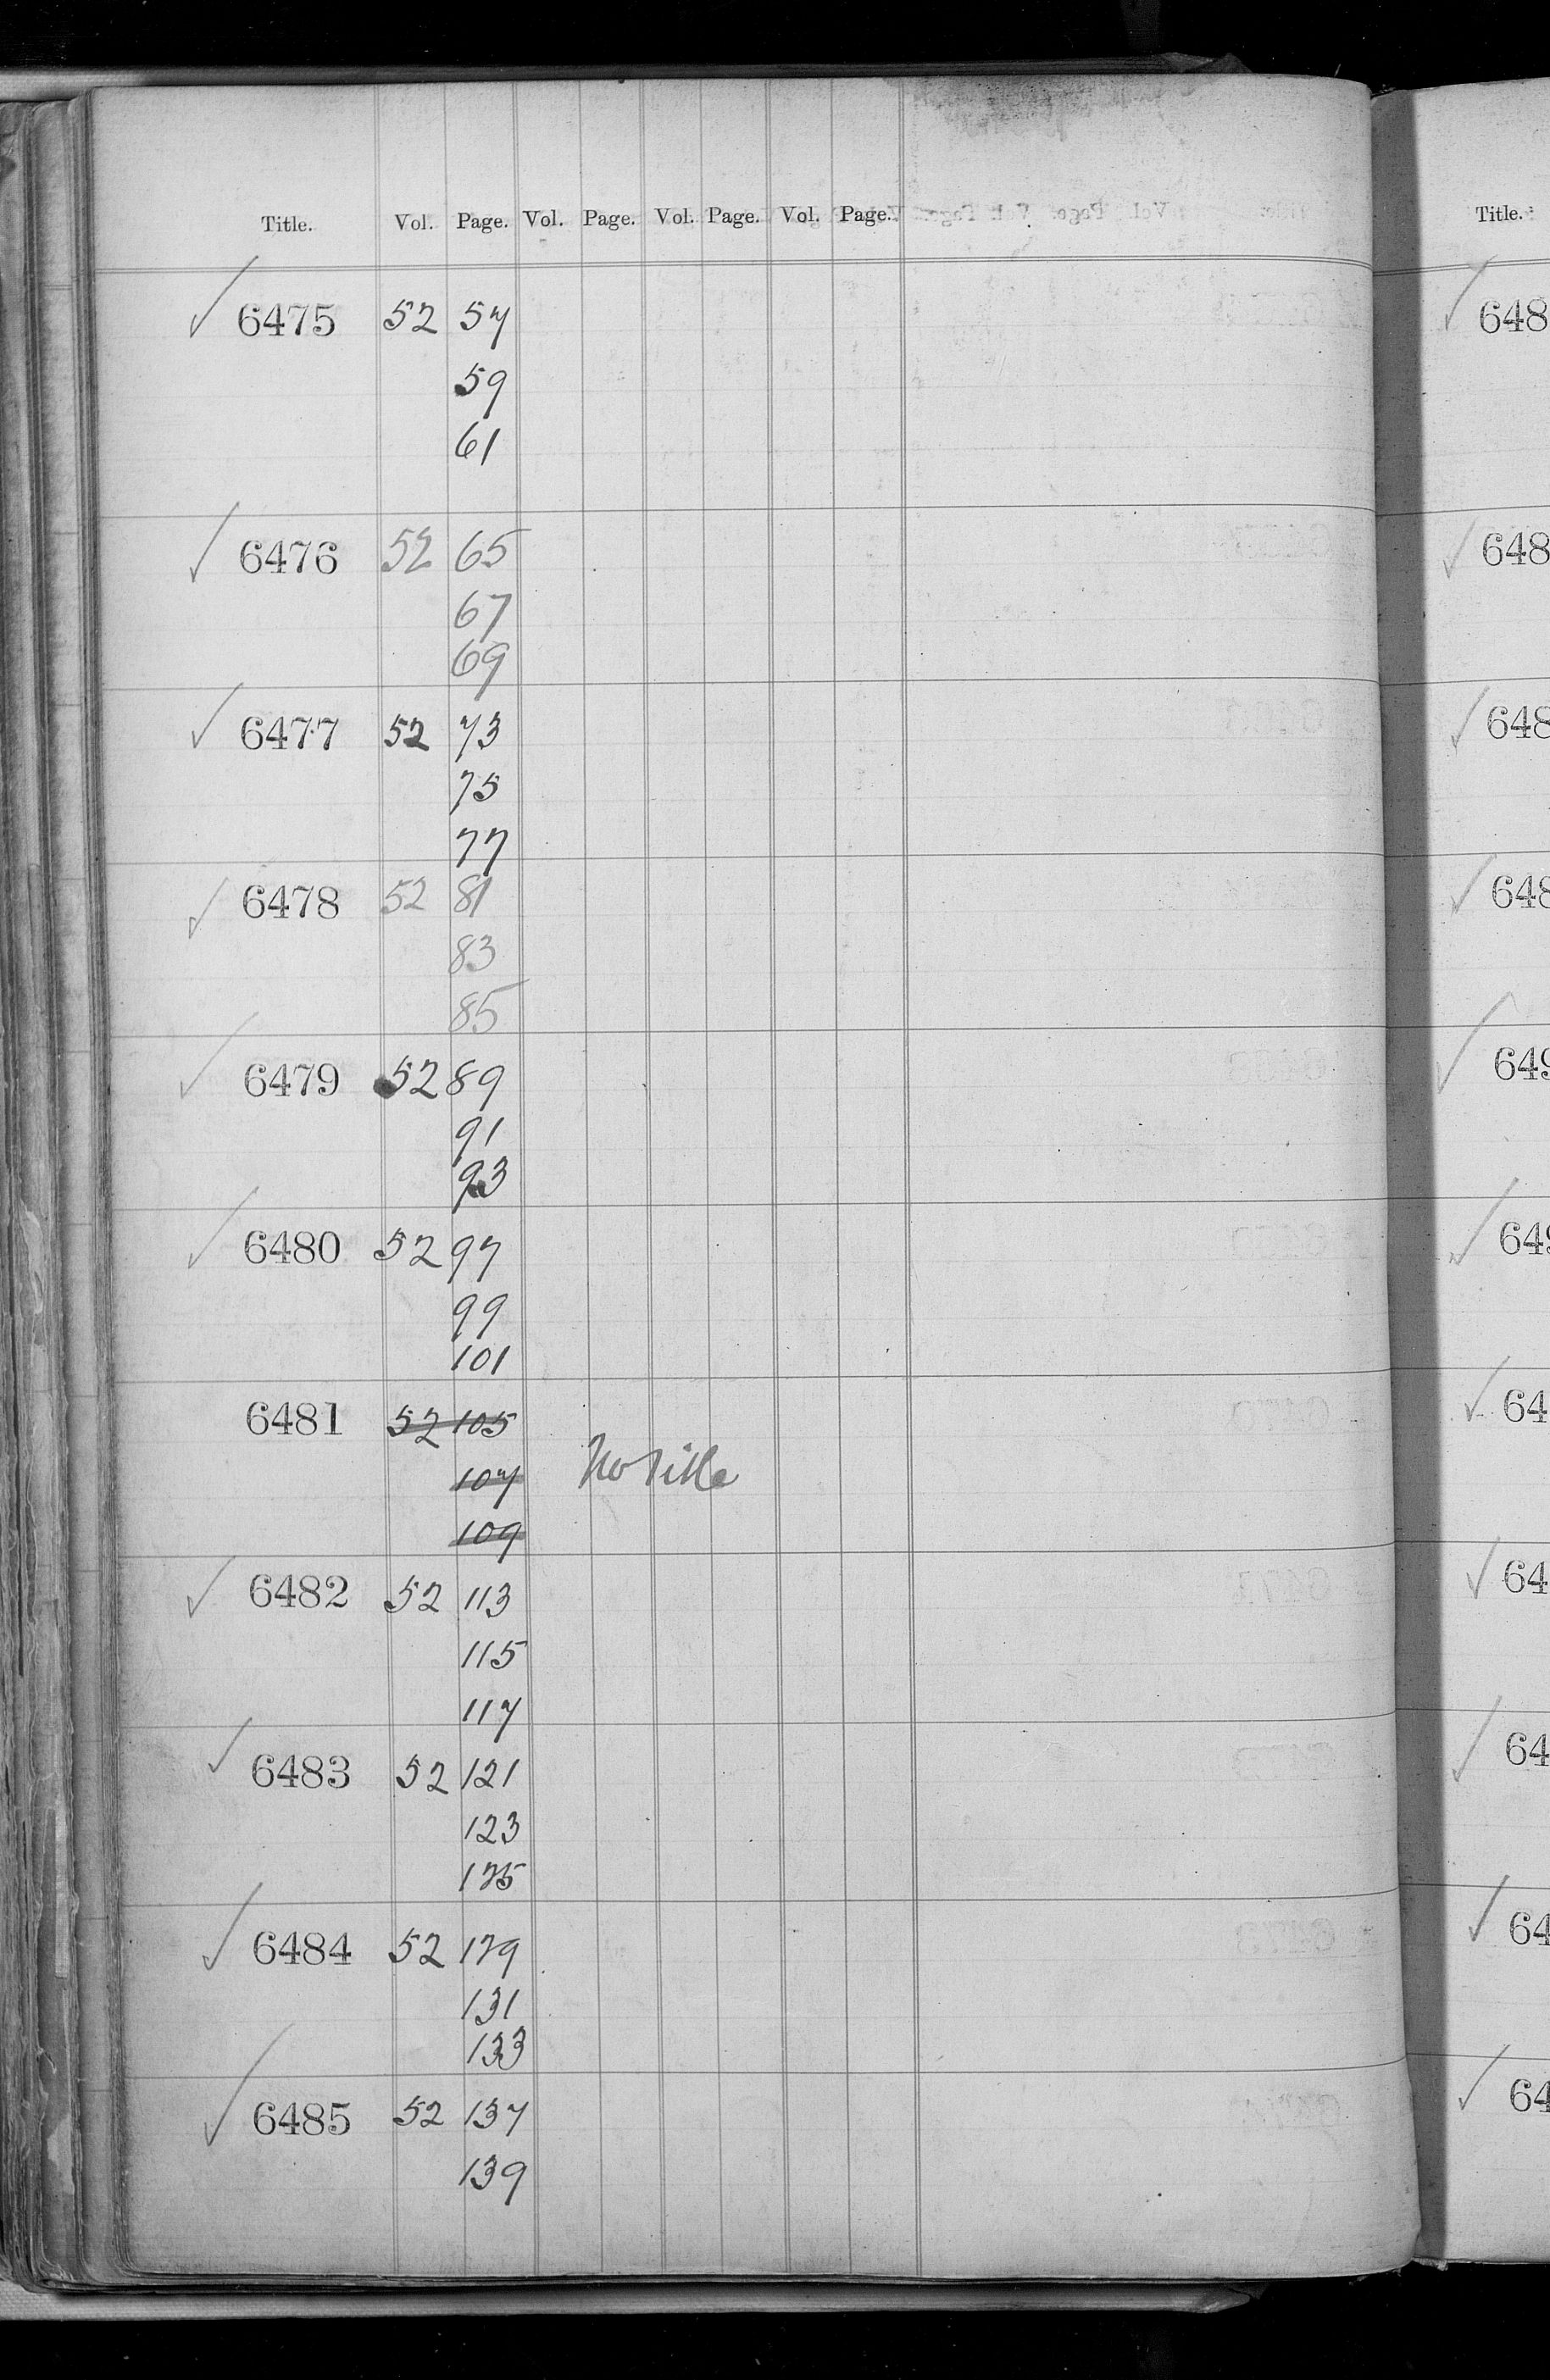 Title. Vol. Page. Vol. Page. Vol. Page. Vol. Page. Title.
✓ 6475 52 57
59
61
✓ 6476 52 65
67
69
✓ 6477 52 73
75
77
✓ 6478 52 81
83
85
✓ 6479 52 89
91
93
✓ 6480 52 97
99
101
6481 52 105
107 No Title
109
✓ 6482 52 113
115
117
✓ 6483 52 121
123
125
✓ 6484 52 129
131
133
✓ 6485 52 137
139